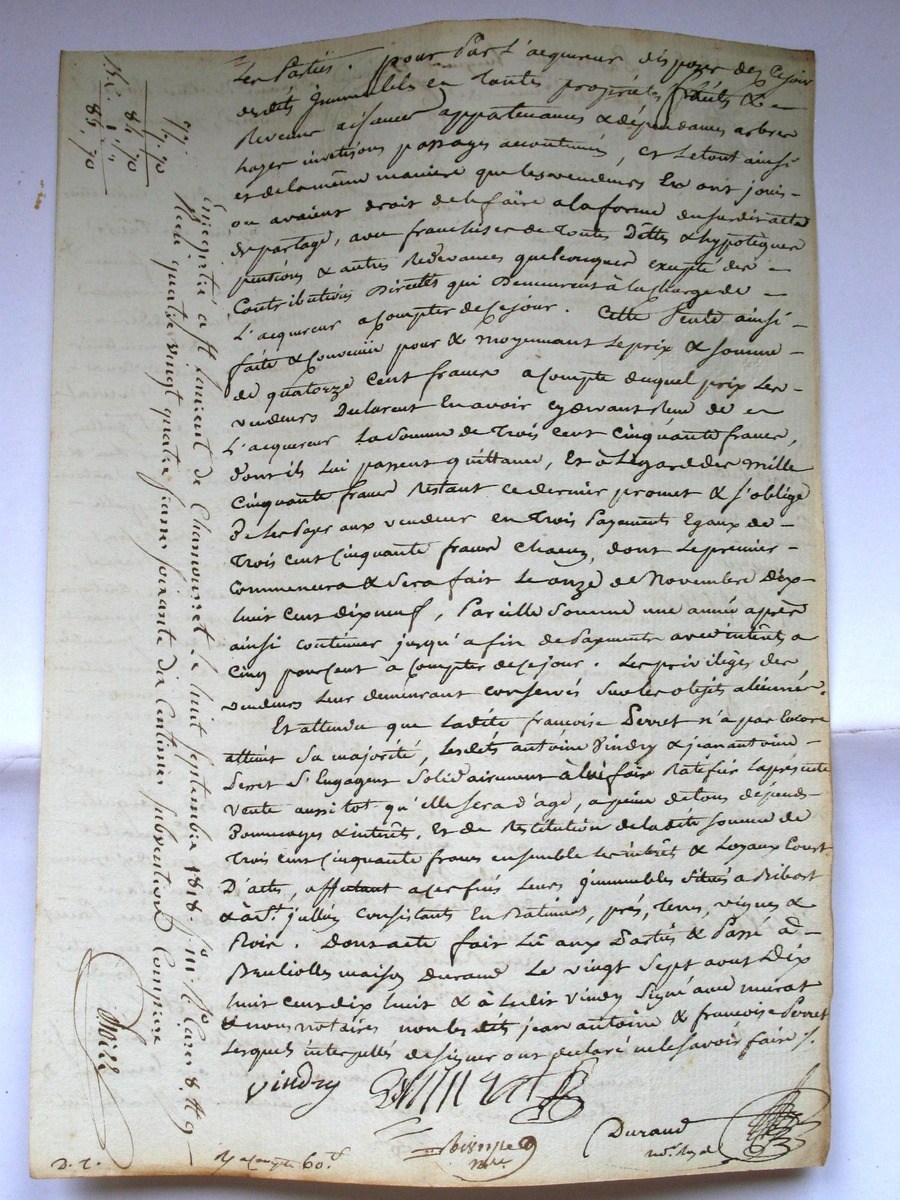 Les Parties. pour Par L'acquereur disposer dez ce jour
desdits Immeubles en Toutes propriétés fruits & -
Revenus aisances appartenances & dépendances arbres
hayes invetisons passages accoutumés, et le tout ainsi
et de la même maniere que les vendeurs En ont jouis -
ou avaient droit de le faire a la forme du susdit acte
de partage, avec franchises de Toutes Dettes & hypoteques
pensions & autres Redevances quelconques excepté des -
Contributions Directes qui Demeurent à la charge de -
L'acquereur a Compter de Ce jour. Cette Vente ainsi -
faite & Convenüe pour & moyennant Le prix & somme -
de quatorze Cent francs a Compte duquel prix Les -
vendeurs Declarent En avoir cy devant Reçu de
L'acquereur La Somme de Trois Cent Cinquante francs,
dont ils Lui passent quittance, Et à L'égard des mille
Cinquante francs Restant ce dernier promet & s'oblige
De Les Payer aux vendeurs en Trois Payements Egaux de -
Trois Cent Cinquante francs Chacun, dont Le premier -
Commencera & Sera fait Le onze de Novembre Dix -
huit Cent dix neuf, Pareille Somme une année après
ainsi Continuer jusqu'a fin de Payements avec intérêts a
Cinq pour Cent a Compter de ce jour. Les privilèges des
vendeurs Leur demeurant Conservés Sur les objets aliennés.
Et attendu que Ladite francoise Perret n'a pas Encore
atteint Sa majorité, Lesdits antoine Vindry & jean antoine -
Perret S'Engagent Solidairement à lui faire Ratifier La présente
Vente aussitot qu'elle Sera d'age, a peine de tous depends
Dommages & intérêts, Et de Restitution de Ladite Somme de
Trois Cent Cinquante francs ensemble Les intérêts & Loyaux Cousts
D'actes, affectant a ces fins Leurs Immeubles Situés a Ribost
& à St. jullien Consistants En Batiments, prés, Terres, vignes &
Bois. Dont acte fait Lû aux Parties & Passé a
Brulliolles maison Durand Le vingt Sept aout Dix
huit Cent dix huit & à Ledit Vindry Signé avec murat
& nous notaires non Lesdits jean antoine & francoise Perret
Lesquels interpellés de signer ont declaré ne le savoir faire ./.
Vindry
Murat
Durand
not. Royal
60
84, 70
85, 70
77, 70
Enregistré a St Laurent de Chamousset Le huit Septembre 1818.
Reçu quatre vingt quatre francs soixante dix Centimes subvention Comprise